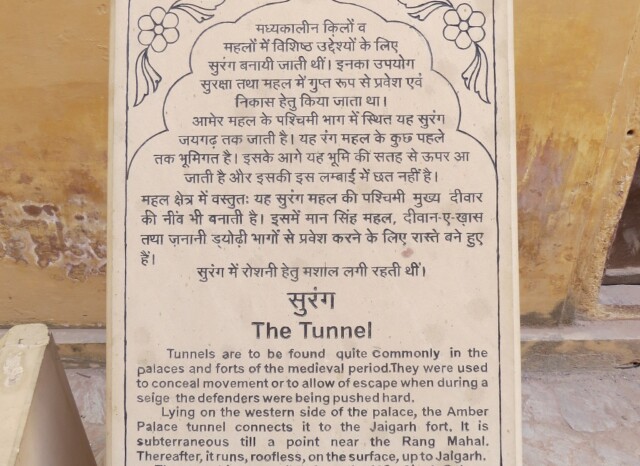 मध्यकालीन क़िलों व
महलों में विशिष्ठ उद्देश्यों के लिए
सुरंग बनायी जाती थीं। इनका उपयोग
सुरक्षा तथा महल में गुप्त रूप से प्रवेश एवं
निकास हेतु किया जाता था।
आमेर महल के पश्चिमी भाग में स्थित यह सुरंग
जयगढ़ तक जाती है। यह रंग महल के कुछ पहले
तक भूमिगत है। इसके आगे यह भूमि की सतह से ऊपर आ
जाती है और इसकी इस लम्बाई में छत नहीं है।
महल क्षेत्र में वस्तुतः यह सुरंग महल की पश्चिमी मुख्य दीवार
की नींव भी बनाती है। इसमें मान सिंह महल, दीवान-ए-ख़ास
तथा ज़नानी ड्योढ़ी भागों से प्रवेश करने के लिए रास्ते बने हुए
हैं।
सुरंग में रोशनी हेतु मशाल लगी रहती थीं।
सुरंग
The Tunnel
Tunnels are to be found quite commonly in the
palaces and forts of the medieval period.They were used
to conceal movement or to allow of escape when during a
seige the defenders were being pushed hard.
Lying on the western side of the palace, the Amber
Palace tunnel connects it to the Jaigarh fort. It is
subterraneous till a point near the Rang Mahal.
Thereafter, it runs, roofless, on the surface, up to Jalgarh.